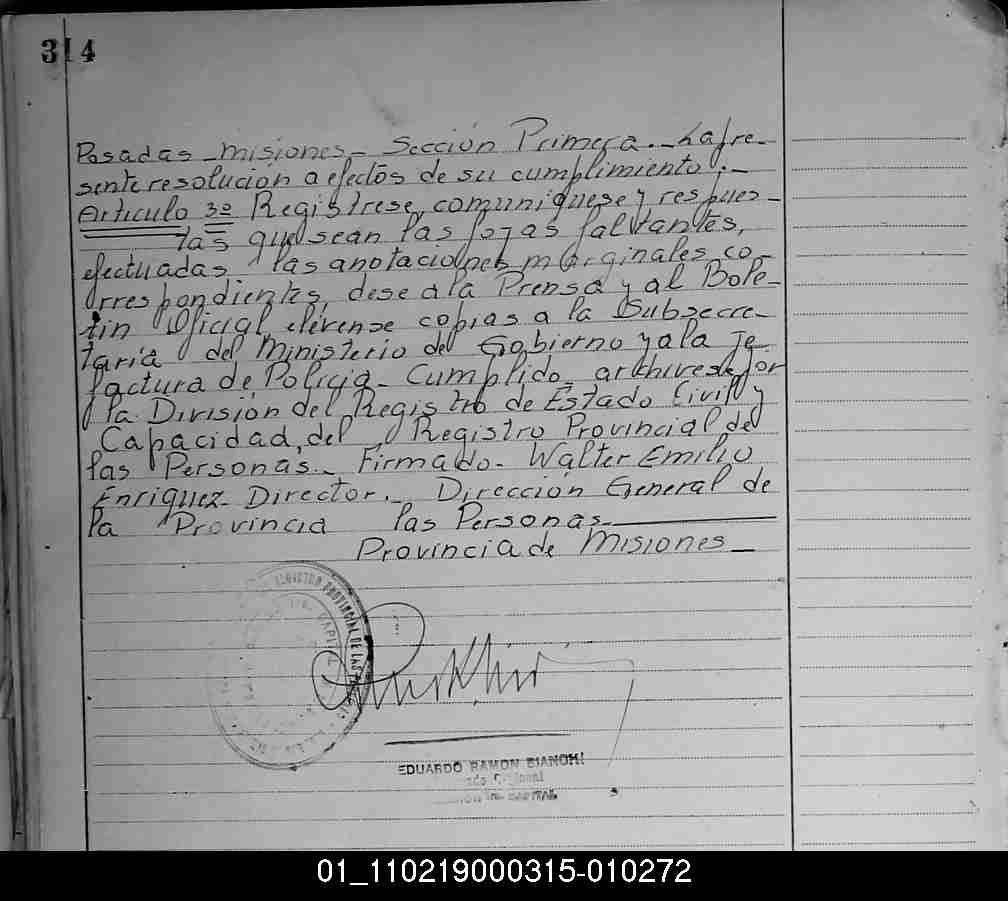 314
Posadas - Misiones - Sección Primera. - La pre-
sente resolución a efectos de su cumplimiento. -
Articulo 3º Registrese, comuniquese y respues-
tas que sean las fojas faltantes,
efectuadas las anotaciones marginales co-
rrespondientes, dese a la Prensa y al Bole-
tin Oficial, elévense copias a la Subsecre-
taría del Ministerio de Gobierno y a la Je
factura de Policia - Cumplido - archivese por
la División del Registro de Estado Civil y
Capacidad, del Registro Provincial de
las Personas - Firmado - Walter Emilio
Enriquez - Director. - Dirección General de
la Provincia las Personas
Provincia de Misiones -
REGISTRO PROVINCIAL DE LAS
EDUARDO RAMON BIANCHI
CAPITAL
01_110219000315-010272